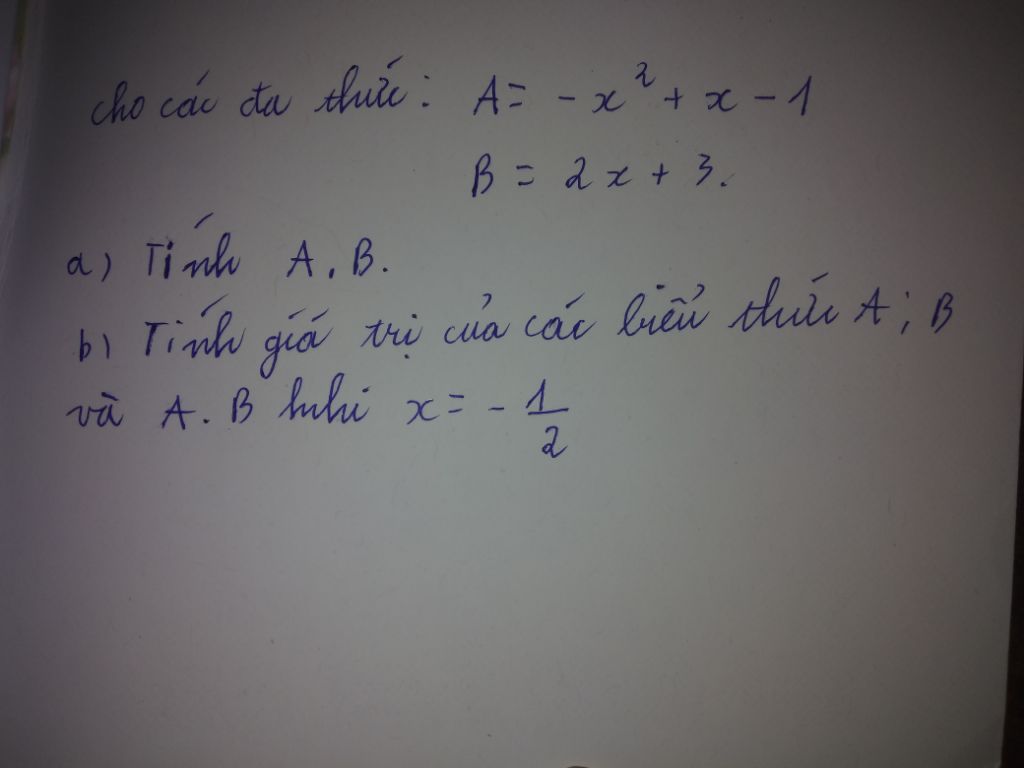 cho các đa thức: A = - x² + x - 1
B = 2x + 3.
a) Tính A.B.
b) Tính giá trị của các biểu thức A; B
và A.B khi x = - 1/2